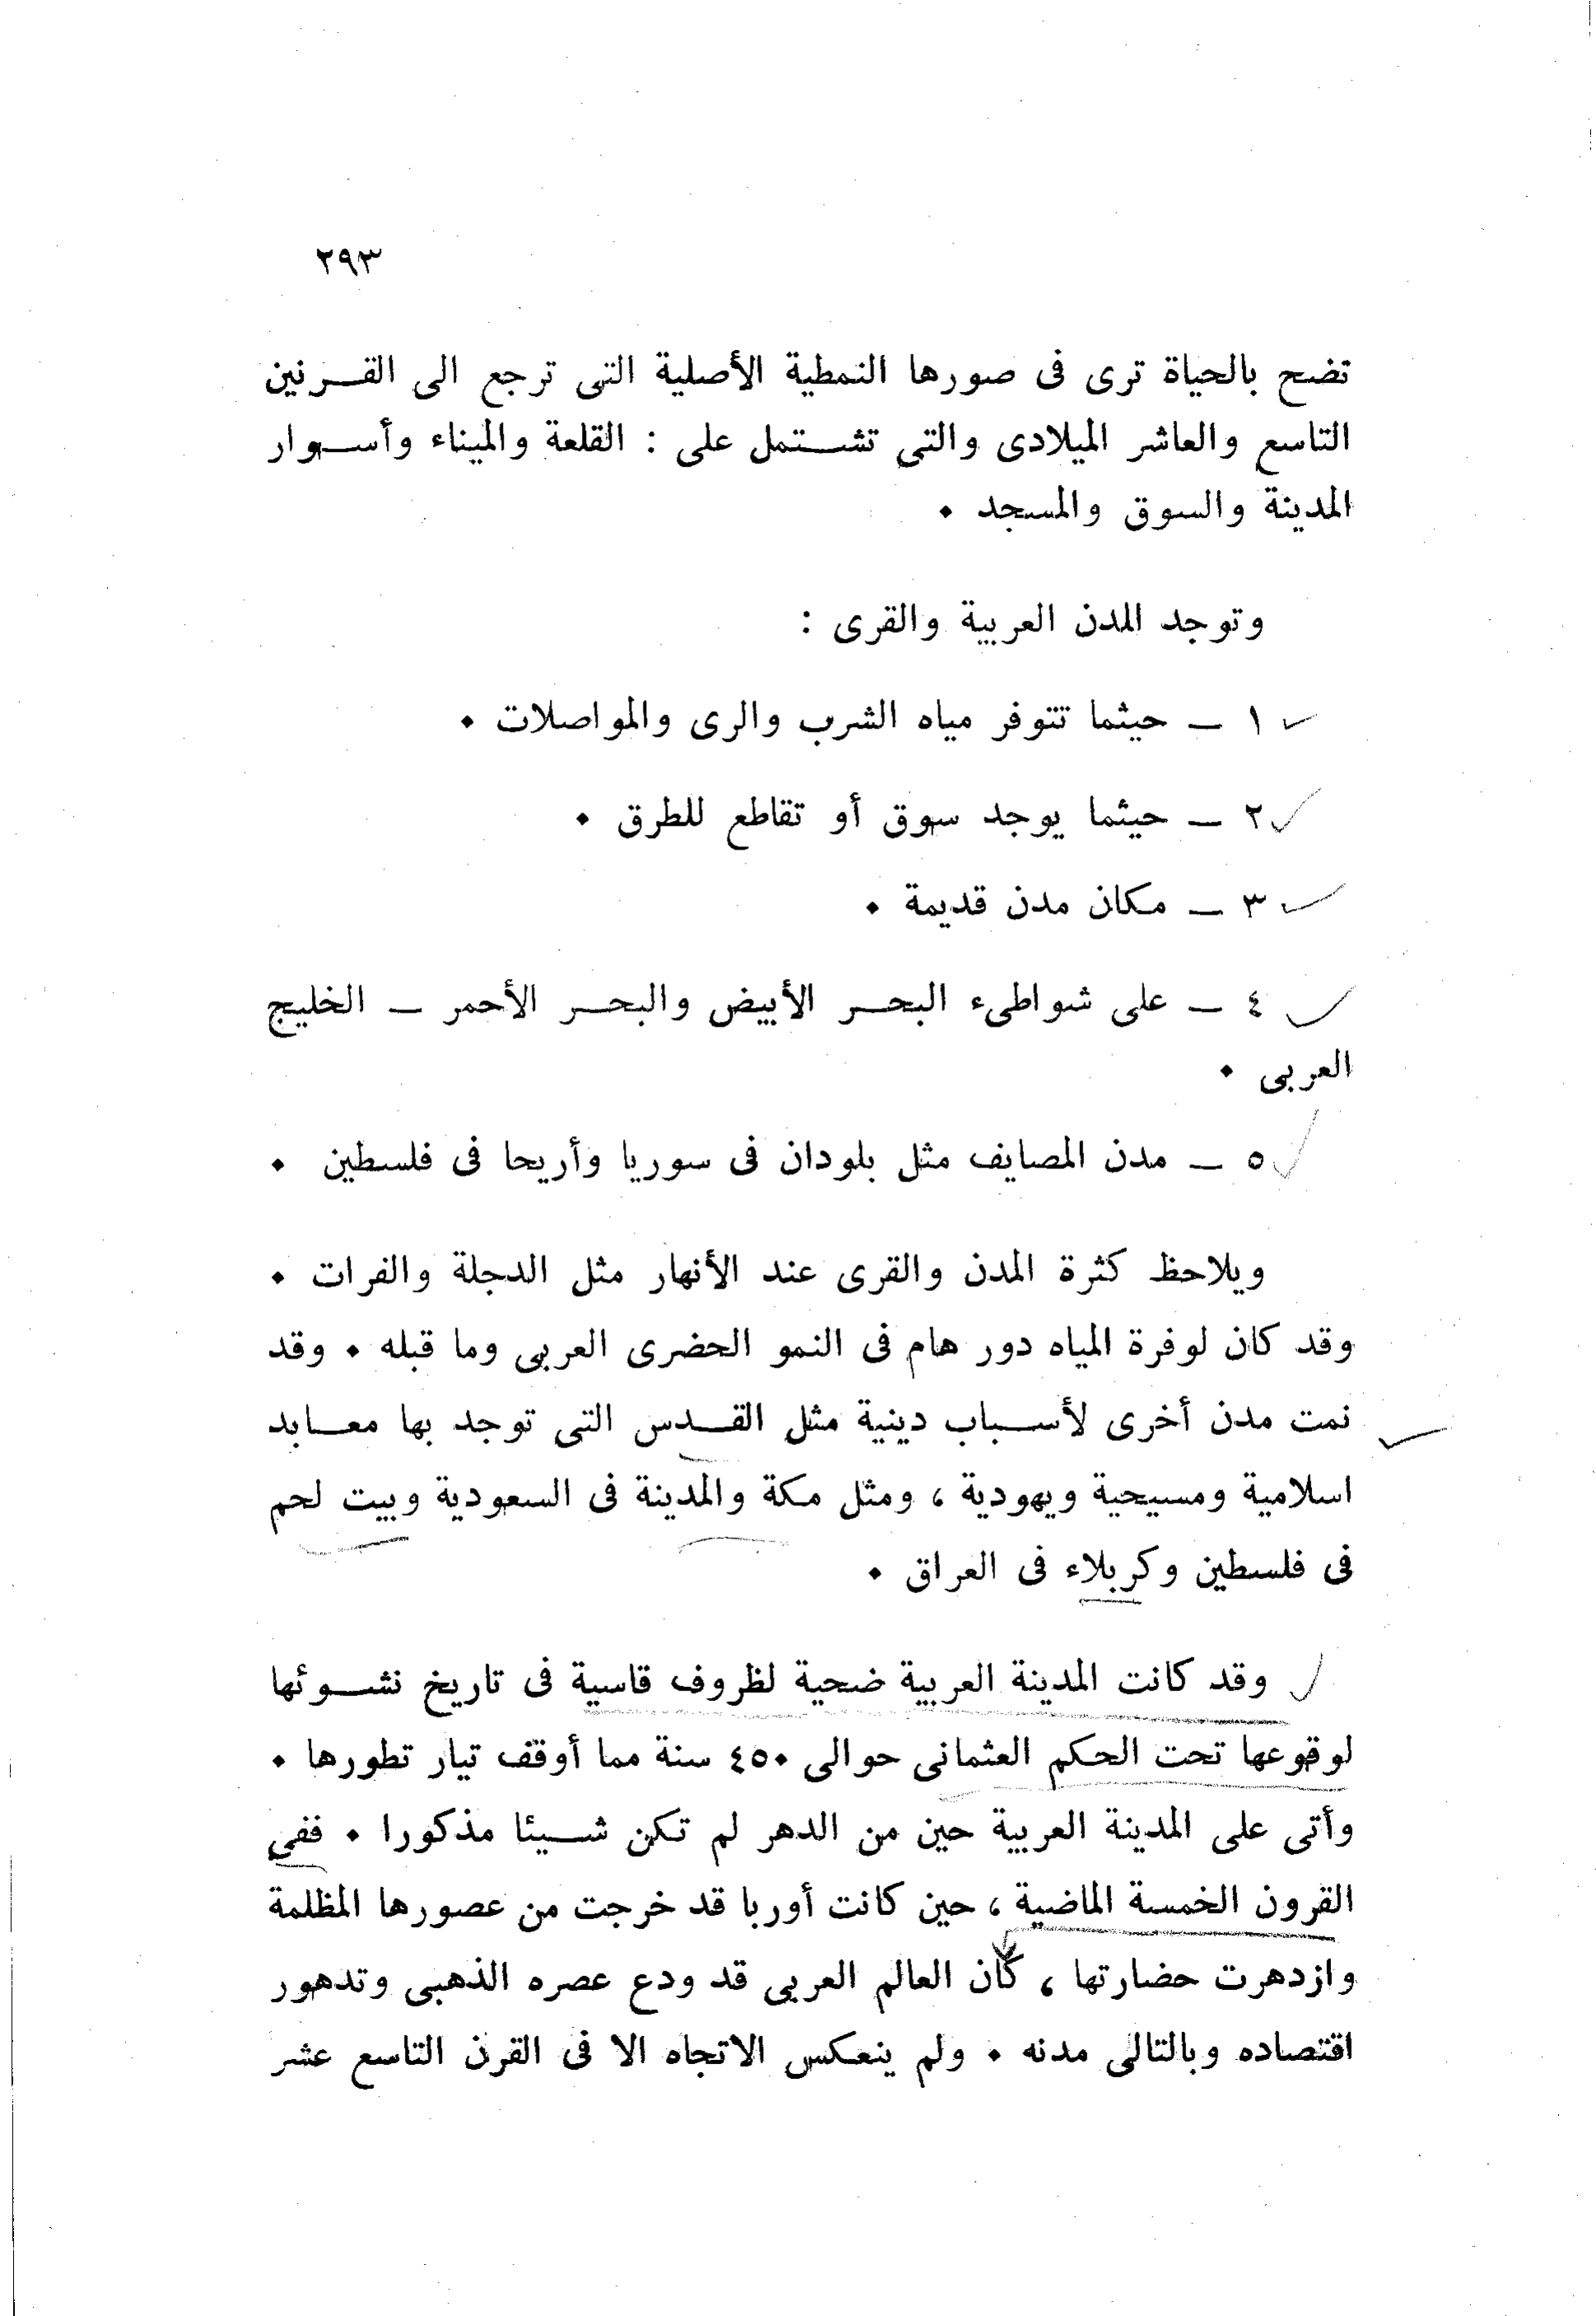 ٢٩٣
تضج بالحياة ترى فى صورها النمطية الأصلية التى ترجع الى القرنين
التاسع والعاشر الميلادى والتى تشتمل على : القلعة والميناء وأسوار
المدينة والسوق والمسجد ٠
وتوجد المدن العربية والقرى :
١ ــ حيثما تتوفر مياه الشرب والرى والمواصلات ٠
٢ ــ حيثما يوجد سوق أو تقاطع للطرق ٠
٣ ــ مكان مدن قديمة ٠
٤ ــ على شواطىء البحر الأبيض والبحر الأحمر ــ الخليج
العربى ٠
٥ ــ مدن المصايف مثل بلودان فى سوريا وأريحا فى فلسطين ٠
ويلاحظ كثرة المدن والقرى عند الأنهار مثل الدجلة والفرات ٠
وقد كان لوفرة المياه دور هام فى النمو الحضرى العربى وما قبله ٠ وقد
نمت مدن أخرى لأسباب دينية مثل القدس التى توجد بها معابد
اسلامية ومسيحية ويهودية ، ومثل مكة والمدينة فى السعودية وبيت لحم
فى فلسطين وكربلاء فى العراق ٠
وقد كانت المدينة العربية ضحية لظروف قاسية فى تاريخ نشوئها
لوقوعها تحت الحكم العثمانى حوالى ٤٥٠ سنة مما أوقف تيار تطورها ٠
وأتى على المدينة العربية حين من الدهر لم تكن شيئا مذكورا ٠ ففى
القرون الخمسة الماضية ، حين كانت أوربا قد خرجت من عصورها المظلمة
وازدهرت حضارتها ، كان العالم العربى قد ودع عصره الذهبى وتدهور
اقتصاده وبالتالى مدنه ٠ ولم ينعكس الاتجاه الا فى القرن التاسع عشر